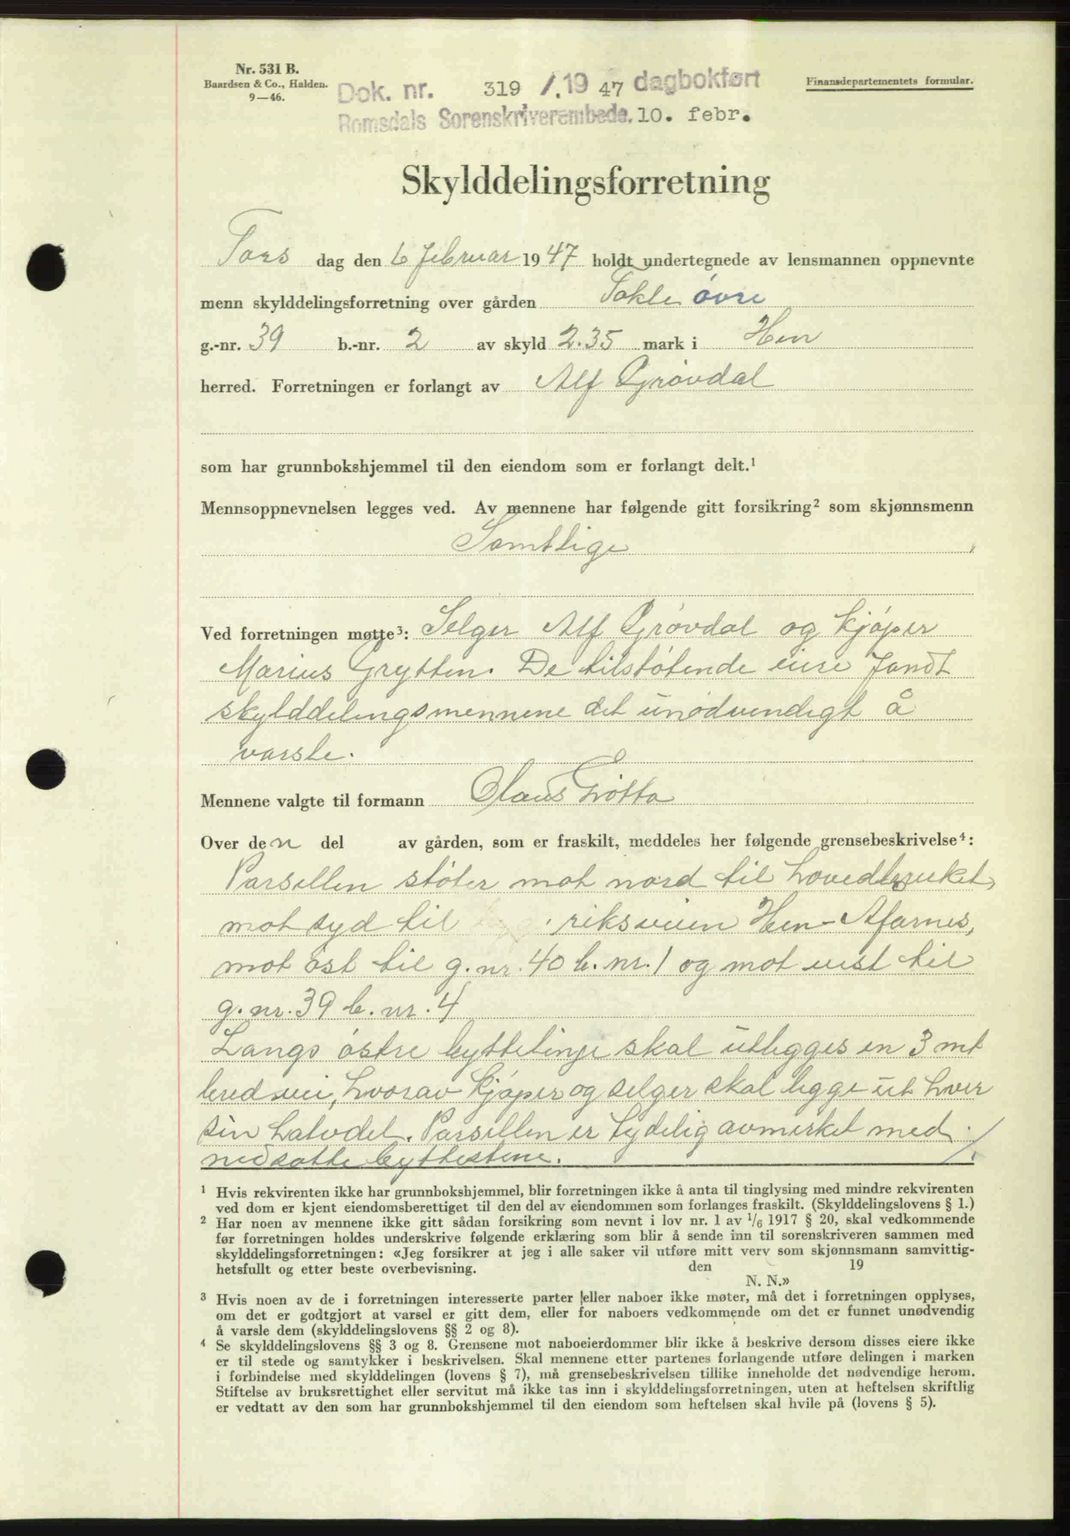 Nr. 531 B.
Baardsen & Co., Halden.
9—46.
Dok. nr. 319 /.19 47 dagbokført
Romsdals Sorenskriverembede. 10. febr.
Finansdepartementets formular.
Skylddelingsforretning
Tors dag den 6 februar 1947 holdt undertegnede av lensmannen oppnevnte
menn skylddelingsforretning over gården Tokle øvre
g.-nr. 39 b.-nr. 2 av skyld 2.35 mark i Hen
herred. Forretningen er forlangt av Alf Grøvdal
som har grunnbokshjemmel til den eiendom som er forlangt delt.¹
Mennsoppnevnelsen legges ved. Av mennene har følgende gitt forsikring² som skjønnsmenn
Samtlige
Ved forretningen møtte³: Selger Alf Grøvdal og kjøper
Marius Grytten. De tilstøtende eiere fandt
skylddelingsmennene det unødvendigt å
varsle.
Mennene valgte til formann Claus
Over den del av gården, som er fraskilt, meddeles her følgende grensebeskrivelse⁴:
Parsellen støter mot nord til hovedbruket,
mot syd til riksveien Hen-Afarnes,
mot øst til g.nr. 40 b.nr. 1 og mot vest til
g.nr. 39 b.nr. 4
Langs østre byttelinje skal utlegges en 3 mt
bred vei, hvorav kjøper og selger skal legge ut hver
sin halvdel. Parsellen er tydelig avmerket med
nedsatte byttestene.
¹ Hvis rekvirenten ikke har grunnbokshjemmel, blir forretningen ikke å anta til tinglysing med mindre rekvirenten
ved dom er kjent eiendomsberettiget til den del av eiendommen som forlanges fraskilt. (Skylddelingslovens § 1.)
² Har noen av mennene ikke gitt sådan forsikring som nevnt i lov nr. 1 av 1/6 1917 § 20, skal vedkommende
før forretningen holdes underskrive følgende erklæring som blir å sende inn til sorenskriveren sammen med
skylddelingsforretningen: «Jeg forsikrer at jeg i alle saker vil utføre mitt verv som skjønnsmann samvittig-
hetsfullt og etter beste overbevisning. den 19
N. N.»
³ Hvis noen av de i forretningen interesserte parter eller naboer ikke møter, må det i forretningen opplyses,
om det er godtgjort at varsel er gitt dem, eller for naboers vedkommende om det er funnet unødvendig
å varsle dem (skylddelingslovens §§ 2 og 8).
⁴ Se skylddelingslovens §§ 3 og 8. Grensene mot naboeierdommer blir ikke å beskrive dersom disses eiere ikke
er til stede og samtykker i beskrivelsen. Skal mennene etter partenes forlangende utføre delingen i marken
i forbindelse med skylddelingen (lovens § 7), må grensebeskrivelsen tillike inneholde det nødvendige herom.
Stiftelse av bruksrettighet eller servitut må ikke tas inn i skylddelingsforretningen, uten at heftelsen skriftlig
er vedtatt av den som har grunnbokshjemmel til den eiendom som heftelsen skal hvile på (lovens § 5).